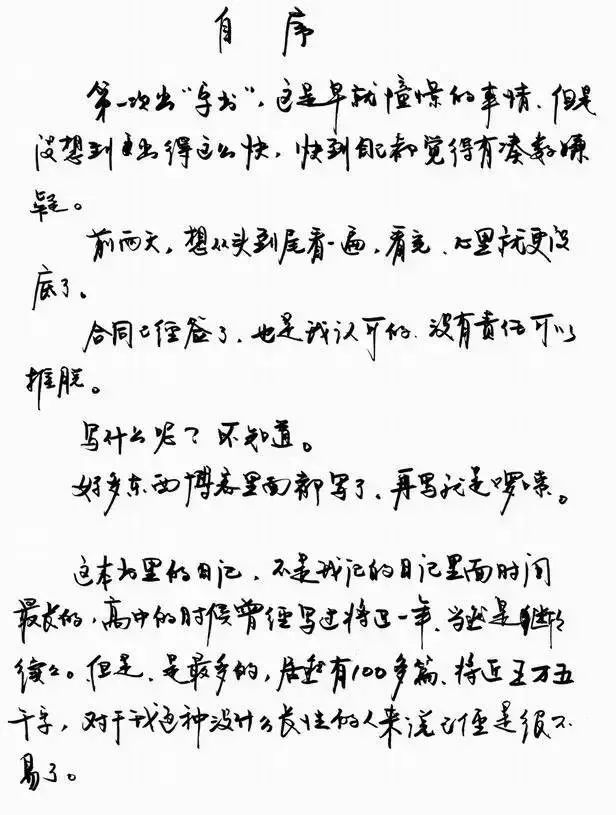 自序
第一次出“字书”，这是早就憧憬的事情、但是
没想到出得这么快，快到自己都觉得有凑数嫌
疑。
前两天，想从头到尾看一遍，看完、心里就更没
底了。
合同已经签了、也是我认可的、没有责任可以
推脱。
写什么呢？不知道。
好多东西博客里面都写了、再写就是啰嗦。
这本书里的日记、不是我记的日记里面时间
最长的，高中的时候曾经写过将近一年、当然是断断
续续。但是、是最多的，居然有100多篇、将近五万五
千字，对于我这种没什么长性的人来说已经是很不
易了。